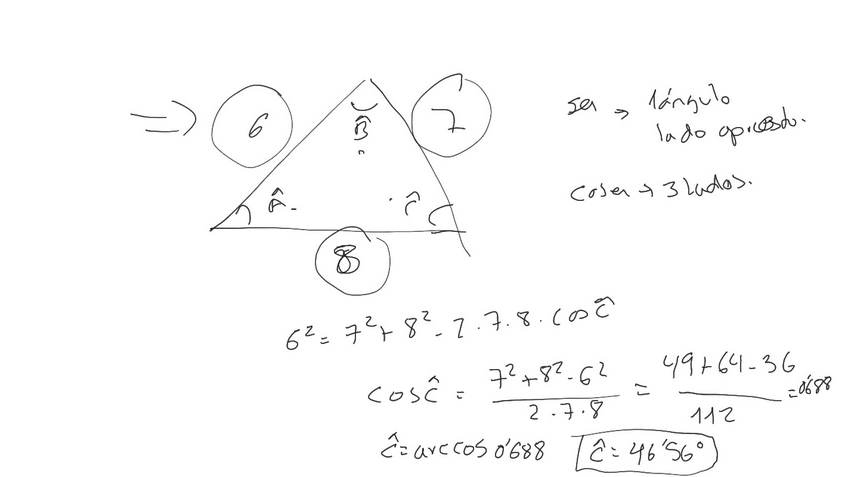 ⇒ 6 B̂ 7
Â Ĉ
8
sen → 1 ángulo
lado opuesto.
coseno → 3 lados.
6² = 7² + 8² - 2 · 7 · 8 · cos Ĉ
cos Ĉ = 7² + 8² - 6² / 2 · 7 · 8 = 49 + 64 - 36 / 112 = 0'688
Ĉ = arccos 0'688 Ĉ = 46'56°